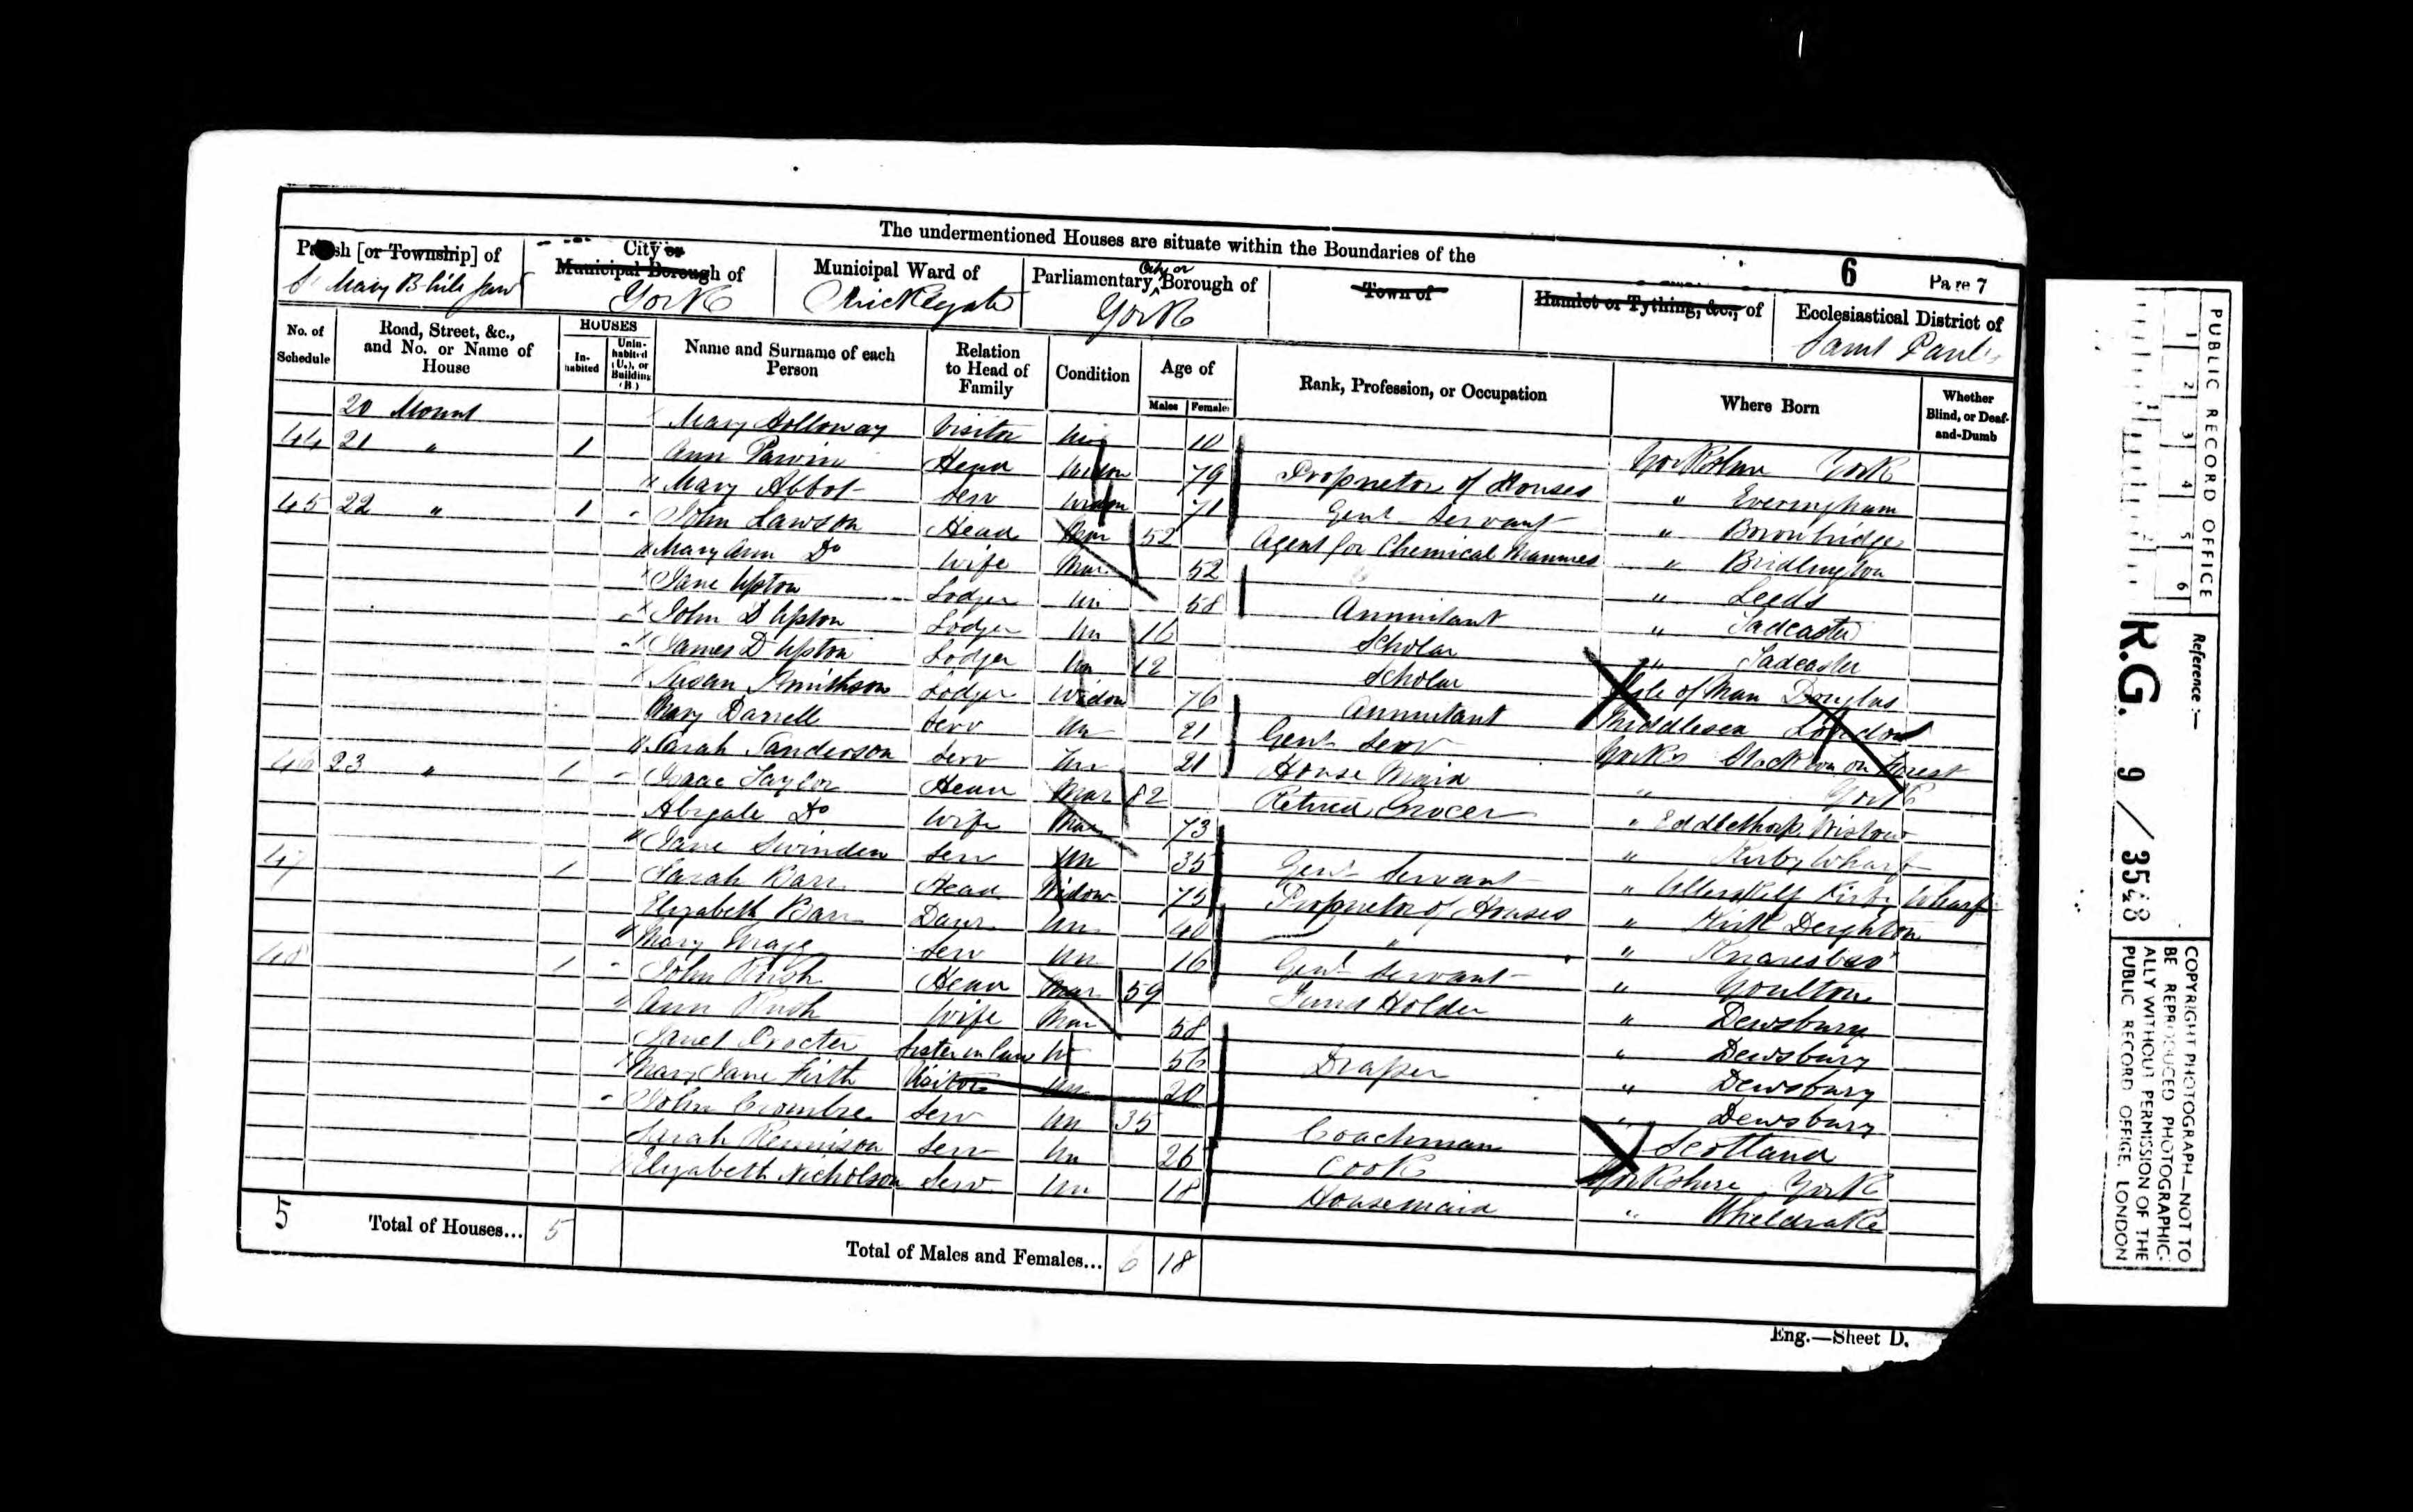 The undermentioned Houses are situate within the Boundaries of the
6
Page 7
Parish [or Township] of
St Mary B hill Junr
City or Municipal Borough of
York
Municipal Ward of
Micklegate
Parliamentary City or Borough of
York
Town of
Hamlet or Tything, &c., of
Ecclesiastical District of
Saint Pauls
No. of Schedule
Road, Street, &c., and No. or Name of House
HOUSES
In-habited
Unin-habited (U.), or Building (B.)
Name and Surname of each Person
Relation to Head of Family
Condition
Age of
Males
Females
Rank, Profession, or Occupation
Where Born
Whether Blind, or Deaf-and-Dumb
20 Mount Mary Holloway Visitor Un 10 Yorkshire York
44 21 " 1 Ann Widow Head 79 Proprietor of Houses " Everingham
Mary Abbot Serv Widow 71 Genl Servant " Borobridge
45 22 " 1 John Lawson Head Mar 52 Agent for Chemical Manures " Bridlington
Mary Ann Do Wife Mar 52 " Leeds
Jane Upton Lodger Un 58 Annuitant " Tadcaster
John D Upton Lodger Un 16 Scholar " Tadcaster
James D Upton Lodger Un 12 Scholar Isle of Man Douglas
Susan Smithson Lodger Widow 76 Annuitant Middlesex London
Mary Darrell Serv Un 21 Genl Serv Yorks Stockton on Forest
Sarah Sanderson Serv Un 21 House Maid " York
46 23 " 1 Isaac Taylor Head Mar 82 Retired Grocer " Eddlethorp Wistow
Abigale Do Wife Mar 73 " Kirby Wharf
Jane Swinden Serv Un 35 Genl Servant " Ulleskelf Kirby Wharf
47 1 Sarah Barr Head Widow 75 Proprietor of Houses " Kirk Deighton
Elizabeth Barr Daur Un 40 " " Knaresbro
Mary Serv Un 16 Genl Servant " Goulton
48 1 John Rush Head Mar 59 Fund Holder " Dewsbury
Ann Rush Wife Mar 58 " Dewsbury
Janet Procter Sister in law W 56 Draper " Dewsbury
Mary Jane Firth Visitor Un 20 " Dewsbury
John Crombie Serv Un 35 Coachman Scotland
Sarah Rennison Serv Un 26 Cook Yorkshire York
Elizabeth Nicholson Serv Un 18 Housemaid " Wheldrake
5
Total of Houses... 5
Total of Males and Females... 6 18
Eng.—Sheet D.
PUBLIC RECORD OFFICE
1 2 3 4 5 6
Reference:—
R.G. 9 / 3548
COPYRIGHT PHOTOGRAPH—NOT TO
BE REPRODUCED PHOTOGRAPHIC-
ALLY WITHOUT PERMISSION OF THE
PUBLIC RECORD OFFICE, LONDON